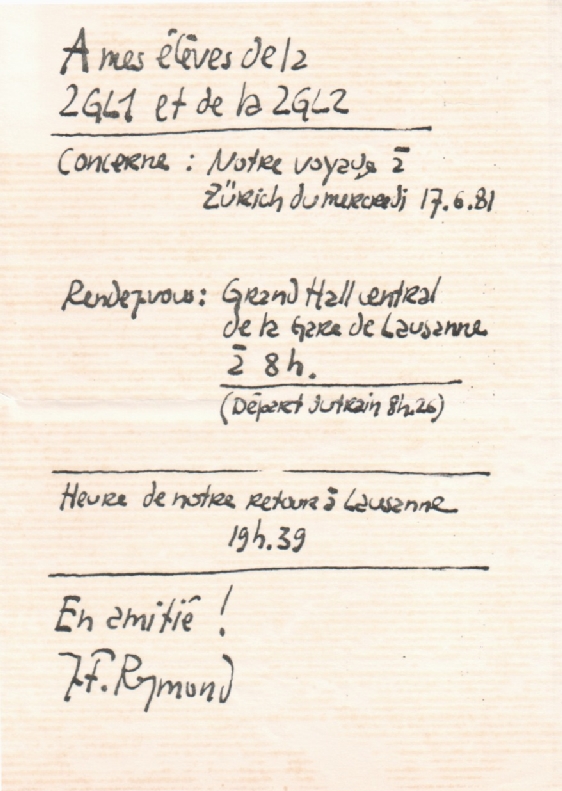 A mes élèves de la
2GL1 et de la 2GL2
Concerne : Notre voyage à
Zürich du mercredi 17.6.81
Rendez-vous : Grand Hall central
de la Gare de Lausanne
à 8h.
(Départ du train 8h.26)
Heure de notre retour à Lausanne
19h.39
En amitié !
J.F. Rymond